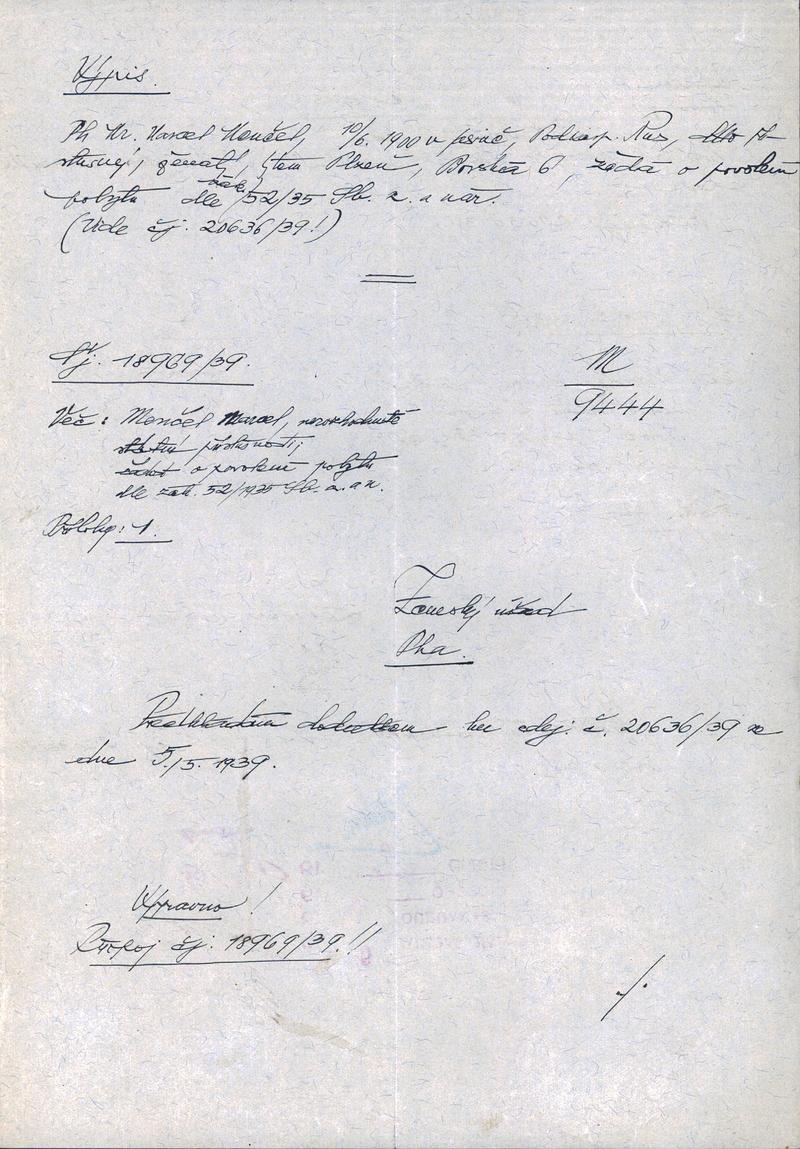 Výpis.
Ph Dr. Marcel Menčel, 10/6. 1900 v Jasině, Podkarp. Rus,
ženat, bytem Plzeň, Borská 6, žádá o povolení
pobytu dle zák. 52/35 Sb. z. a nař.
(Vide čj. 20636/39!)
Čj. 18969/39.
M
9444
Věc: Menčel Marcel, nerozhodnuté
státní příslušnosti;
žádost o povolení pobytu
dle zák. 52/1935 Sb. z. a n.
Přílohy: 1.
Zemský úřad
Pha.
Předkládám dodatkem ku zdej. č. 20636/39 ze
dne 5./5. 1939.
Vypraveno!
Rukoj čj. 18969/39.!!